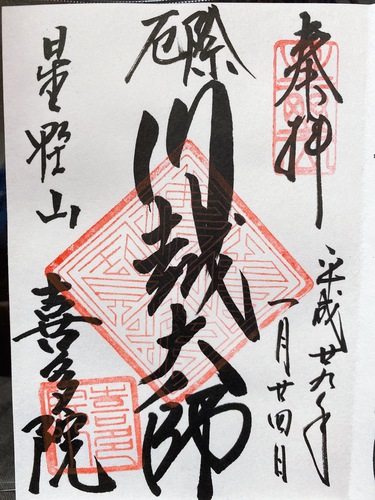 奉拝
平成廿九年
一月廿四日
厄除
川越大師
星野山
喜多院
喜多院